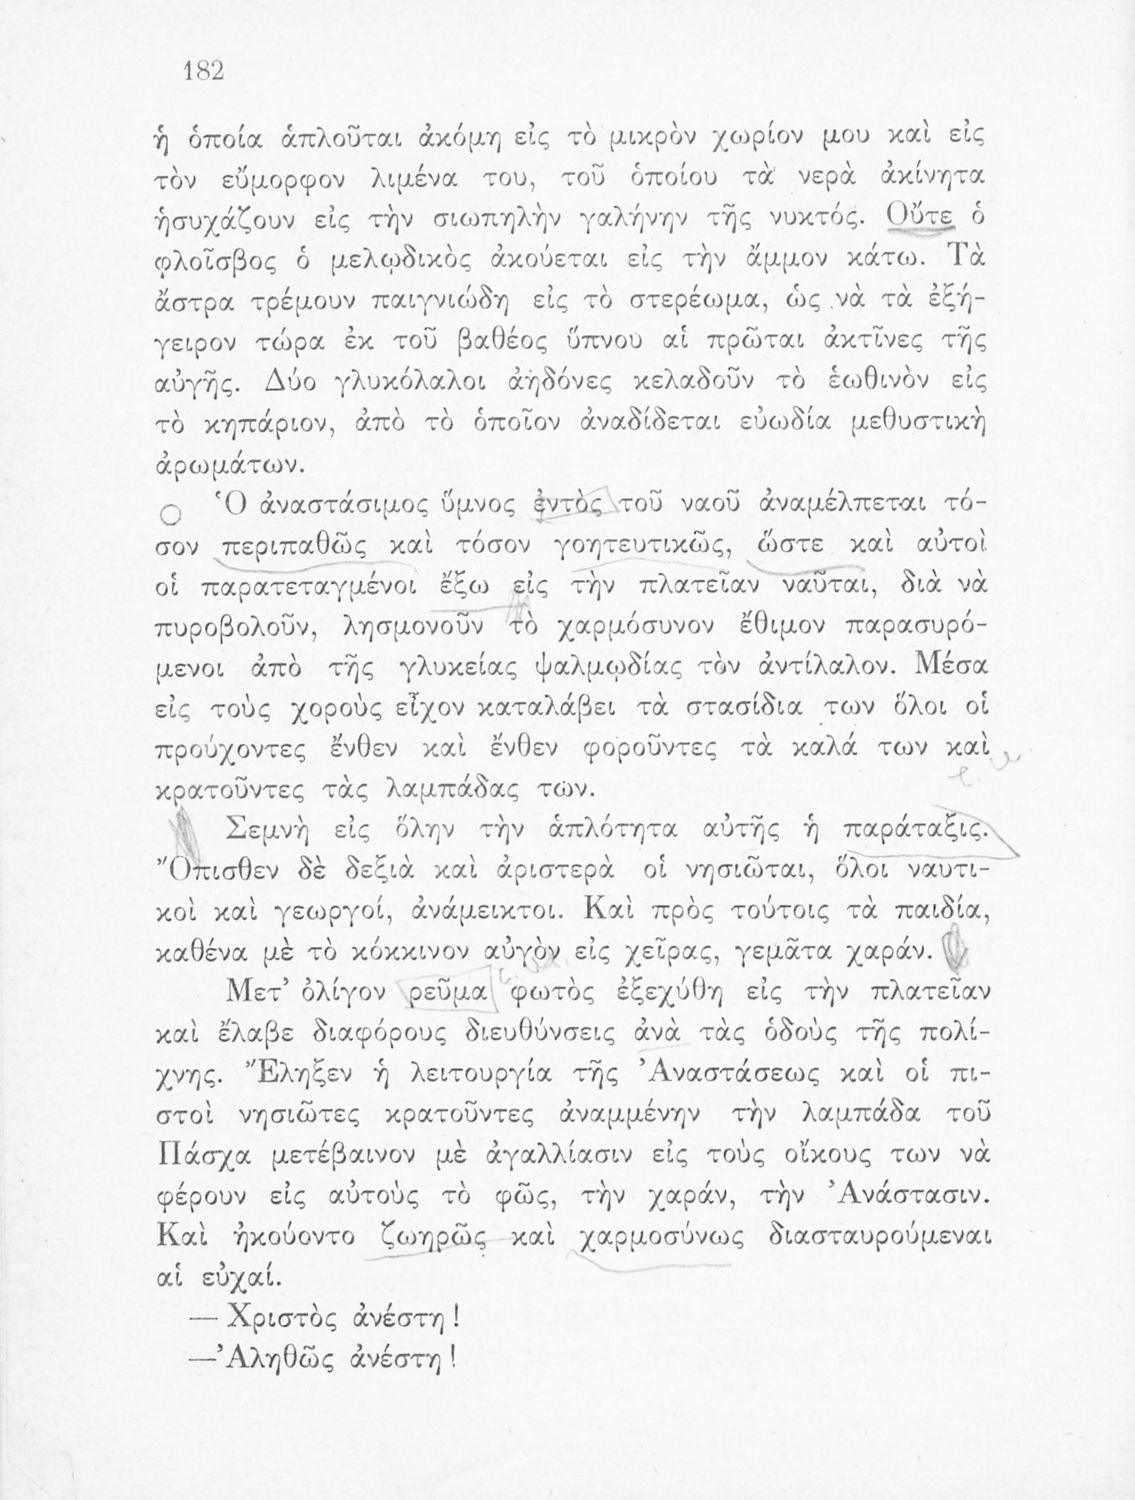 182
ἡ ὁποία ἁπλοῦται ἀκόμη εἰς τὸ μικρὸν χωρίον μου καὶ εἰς
τὸν εὔμορφον λιμένα του, τοῦ ὁποίου τὰ νερὰ ἀκίνητα
ἡσυχάζουν εἰς τὴν σιωπηλὴν γαλήνην τῆς νυκτός. Οὔτε ὁ
φλοῖσβος ὁ μελῳδικὸς ἀκούεται εἰς τὴν ἄμμον κάτω. Τὰ
ἄστρα τρέμουν παιγνιώδη εἰς τὸ στερέωμα, ὡς νὰ τὰ ἐξή-
γειρον τώρα ἐκ τοῦ βαθέος ὕπνου αἱ πρῶται ἀκτῖνες τῆς
αὐγῆς. Δύο γλυκόλαλοι ἀηδόνες κελαδοῦν τὸ ἑωθινὸν εἰς
τὸ κηπάριον, ἀπὸ τὸ ὁποῖον ἀναδίδεται εὐωδία μεθυστικὴ
ἀρωμάτων.
Ὁ ἀναστάσιμος ὕμνος ἐντὸς τοῦ ναοῦ ἀναμέλπεται τό-
σον περιπαθῶς καὶ τόσον γοητευτικῶς, ὥστε καὶ αὐτοὶ
οἱ παρατεταγμένοι ἔξω εἰς τὴν πλατεῖαν ναῦται, διὰ νὰ
πυροβολοῦν, λησμονοῦν τὸ χαρμόσυνον ἔθιμον παρασυρό-
μενοι ἀπὸ τῆς γλυκείας ψαλμῳδίας τὸν ἀντίλαλον. Μέσα
εἰς τοὺς χοροὺς εἶχον καταλάβει τὰ στασίδια των ὅλοι οἱ
προύχοντες ἔνθεν καὶ ἔνθεν φοροῦντες τὰ καλά των καὶ
κρατοῦντες τὰς λαμπάδας των.
Σεμνὴ εἰς ὅλην τὴν ἁπλότητα αὐτῆς ἡ παράταξις.
Ὄπισθεν δὲ δεξιὰ καὶ ἀριστερὰ οἱ νησιῶται, ὅλοι ναυτι-
κοὶ καὶ γεωργοί, ἀνάμεικτοι. Καὶ πρὸς τούτοις τὰ παιδία,
καθένα μὲ τὸ κόκκινον αὐγὸν εἰς χεῖρας, γεμᾶτα χαράν.
Μετ’ ὀλίγον ρεῦμα φωτὸς ἐξεχύθη εἰς τὴν πλατεῖαν
καὶ ἔλαβε διαφόρους διευθύνσεις ἀνὰ τὰς ὁδοὺς τῆς πολί-
χνης. Ἔληξεν ἡ λειτουργία τῆς Ἀναστάσεως καὶ οἱ πι-
στοὶ νησιῶτες κρατοῦντες ἀναμμένην τὴν λαμπάδα τοῦ
Πάσχα μετέβαινον μὲ ἀγαλλίασιν εἰς τοὺς οἴκους των νὰ
φέρουν εἰς αὐτοὺς τὸ φῶς, τὴν χαράν, τὴν Ἀνάστασιν.
Καὶ ἠκούοντο ζωηρῶς καὶ χαρμοσύνως διασταυρούμεναι
αἱ εὐχαί.
— Χριστὸς ἀνέστη !
—Ἀληθῶς ἀνέστη !